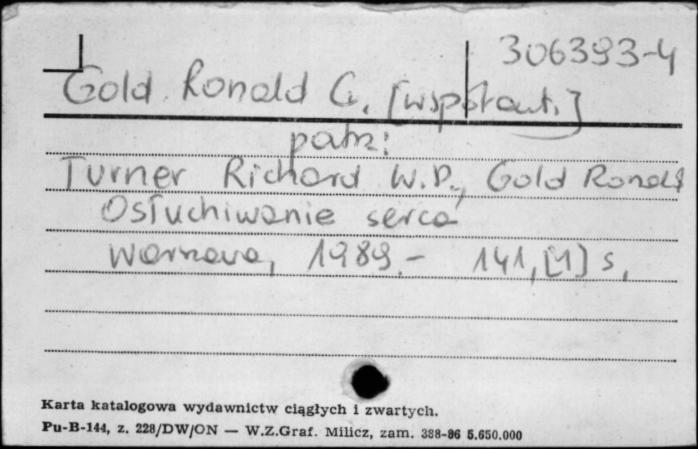 306393-4
Gold Ronald G. [współaut.]
patrz:
Turner Richard W.D., Gold Ronald
Osłuchiwanie serca
Warszawa, 1989.- 141, [1] s.
Karta katalogowa wydawnictw ciągłych i zwartych.
Pu-B-144, z. 228/DW/ON — W.Z.Graf. Milicz, zam. 388-86 5.650.000